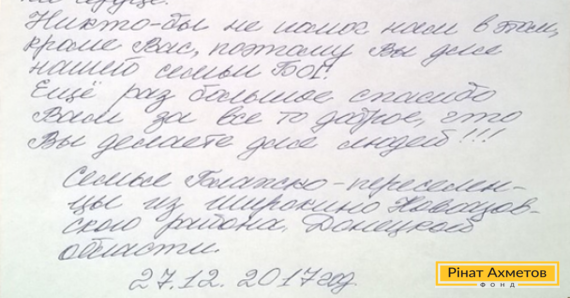 Никто-бы не помог нам в этом,
кроме Вас, поэтому Вы для
нашей семьи БОГ.
Ещё раз большое спасибо
Вам за все то доброе, что
Вы делаете для людей!!!
Семья Блажко-переселен-
цы из Широкино Новоазов-
ского района, Донецкой
области.
27.12. 2017год.
Рінат Ахметов
ФОНД